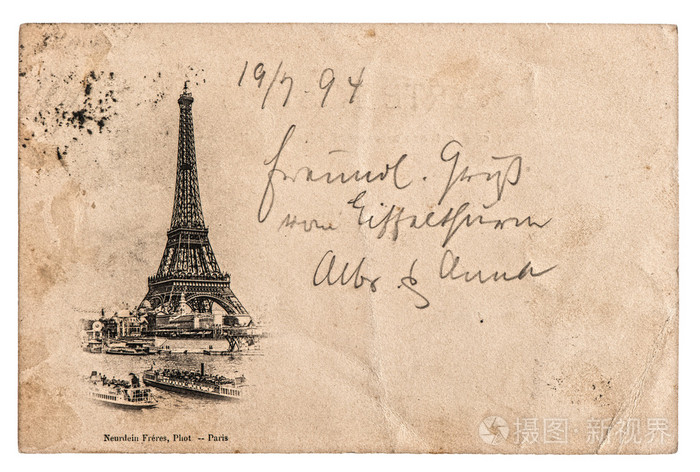 19/7.94
Freundl. Gruß
vom Eiffelthurm
Albr. & Anna
Neurdein Fréres, Phot -- Paris
新视界